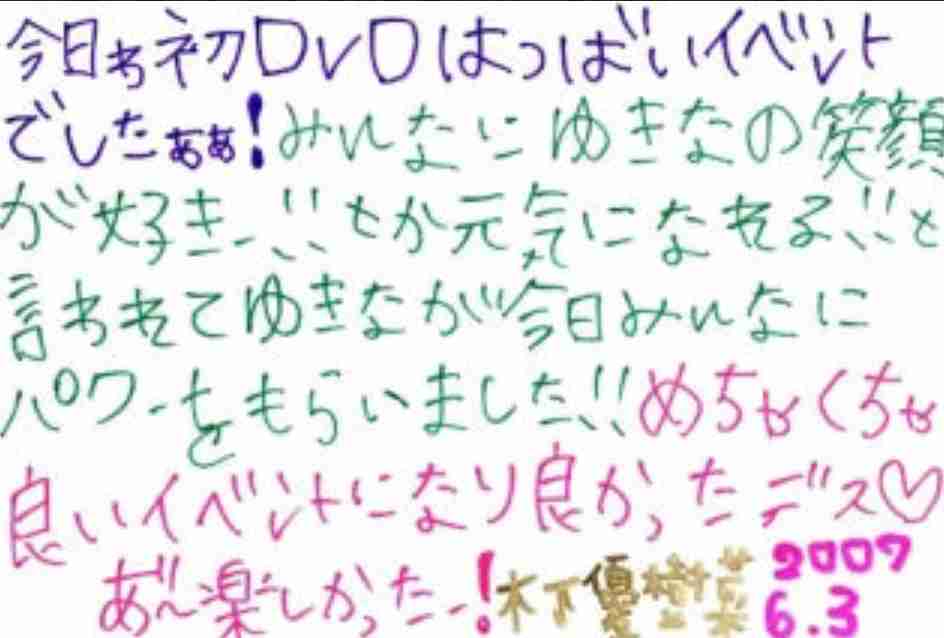 今日ゎ初DVDはつばいイベント
でしたぁぁ!みんなにゆきなの笑顔
が好き-!!とか元気になれる!!と
言われてゆきなが今日みんなに
パワーをもらいました!!めちゃくちゃ
良いイベントになり良かったデス♡
あ゛〜楽しかったー!木下優樹菜 2007
6.3